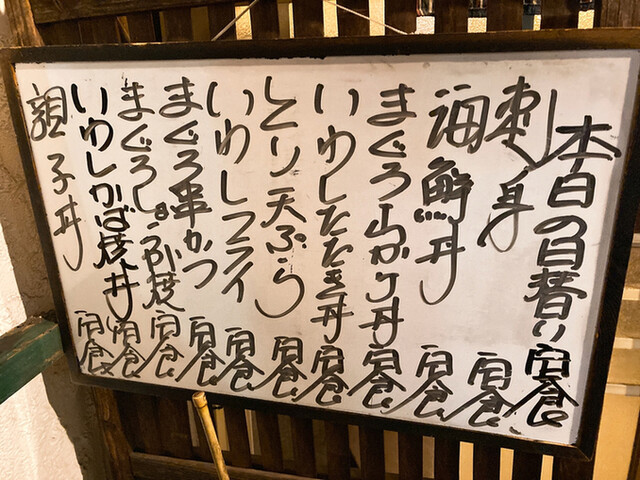 本日の日替り定食
刺身定食
海鮮丼定食
まぐろ山かけ丼定食
いわしたたき丼定食
とり天ぷら定食
いわしフライ定食
まぐろ串かつ定食
まぐろしょうが焼定食
いわしかば焼丼定食
親子丼定食